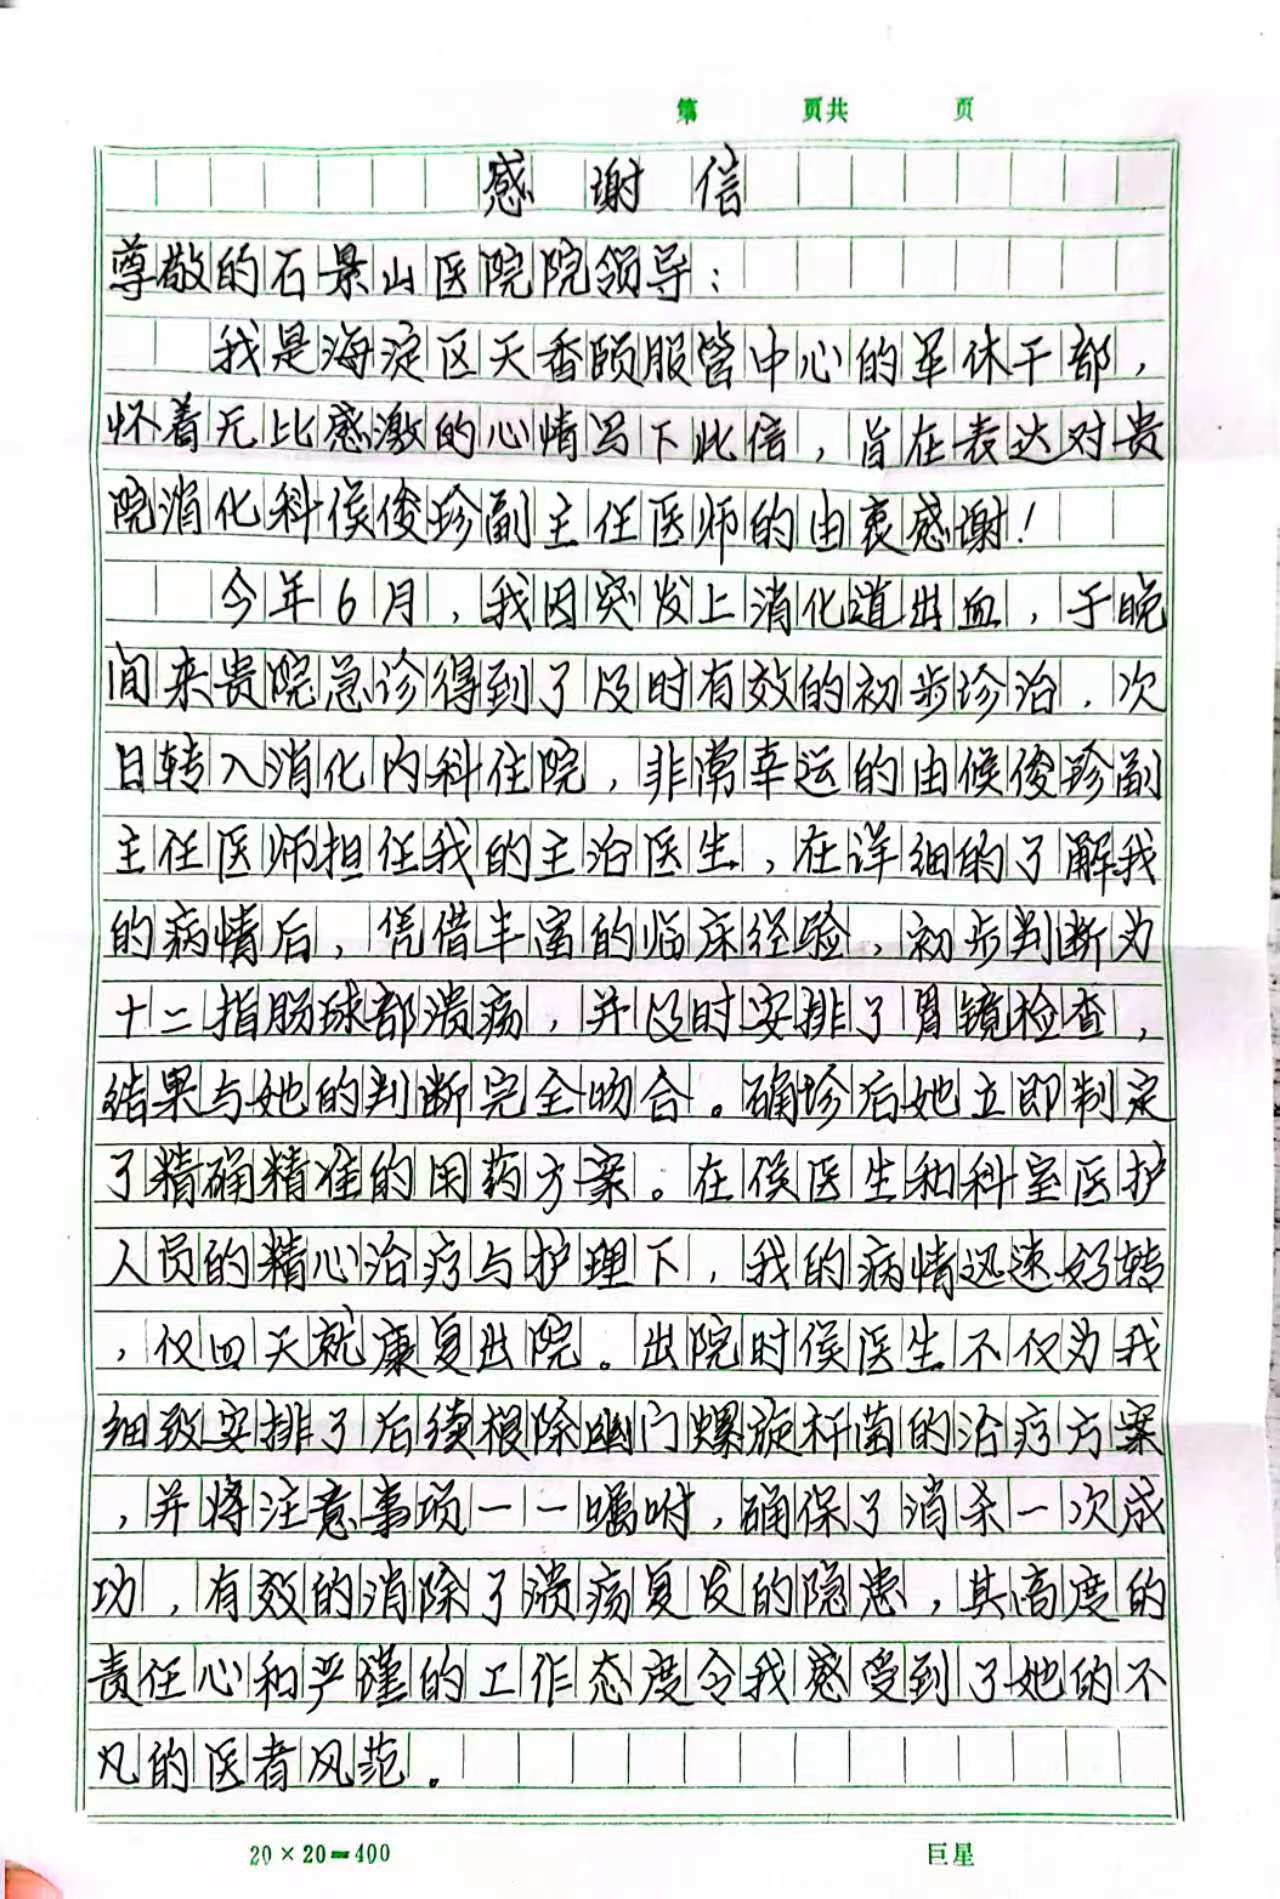 第 页共 页
感谢信
尊敬的石景山医院院领导：
我是海淀区天香颐服管中心的军休干部，
怀着无比感激的心情写下此信，旨在表达对贵
院消化科侯俊珍副主任医师的由衷感谢！
今年6月，我因突发上消化道出血，于晚
间来贵院急诊得到了及时有效的初步诊治，次
日转入消化内科住院，非常幸运的由候俊珍副
主任医师担任我的主治医生，在详细的了解我
的病情后，凭借丰富的临床经验，初步判断为
十二指肠球部溃疡，并及时安排了胃镜检查，
结果与她的判断完全吻合。确诊后她立即制定
了精确精准的用药方案。在侯医生和科室医护
人员的精心治疗与护理下，我的病情迅速好转
，仅四天就康复出院。出院时侯医生不仅为我
细致安排了后续根除幽门螺旋杆菌的治疗方案
，并将注意事项一一嘱咐，确保了消杀一次成
功，有效的消除了溃疡复发的隐患，其高度的
责任心和严谨的工作态度令我感受到了她的不
凡的医者风范。
20×20=400 巨星